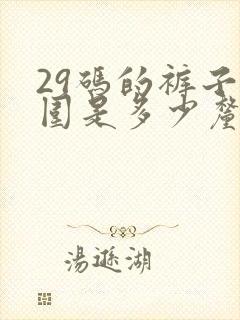 29碼的裤子
围是多少釐
湯遜湖